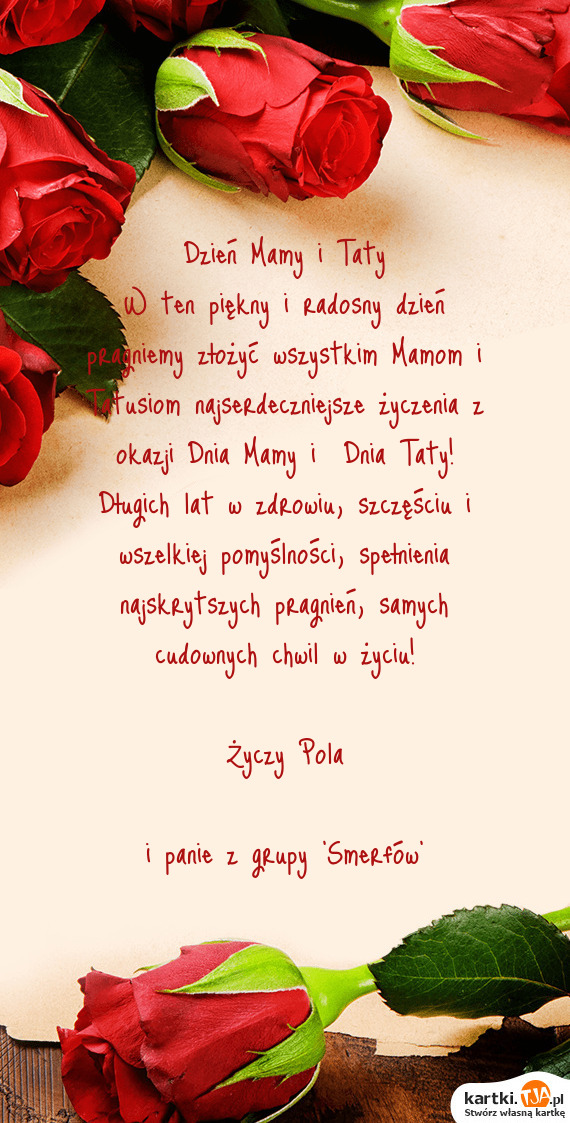 Dzień Mamy i Taty
W ten piękny i radosny dzień
pragniemy złożyć wszystkim Mamom i
Tatusiom najserdeczniejsze życzenia z
okazji Dnia Mamy i Dnia Taty!
Długich lat w zdrowiu, szczęściu i
wszelkiej pomyślności, spełnienia
najskrytszych pragnień, samych
cudownych chwil w życiu!
Życzy Pola
i panie z grupy 'Smerfów'
kartki.TJA.pl
Stwórz własną kartkę